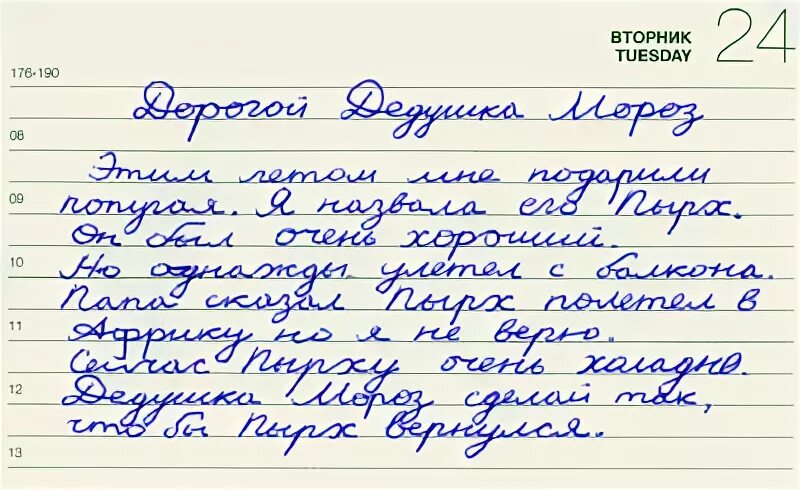 ВТОРНИК 24
TUESDAY
176-190
Дорогой Дедушка Мороз
08
Этим летом мне подарили
09
попугая. Я назвала его Пырх.
Он был очень хороший.
10
Но однажды улетел с балкона.
Папа сказал Пырх полетел в
11
Африку но я не верю.
Сейчас Пырху очень халадно.
12
Дедушка Мороз сделай так,
что бы Пырх вернулся.
13